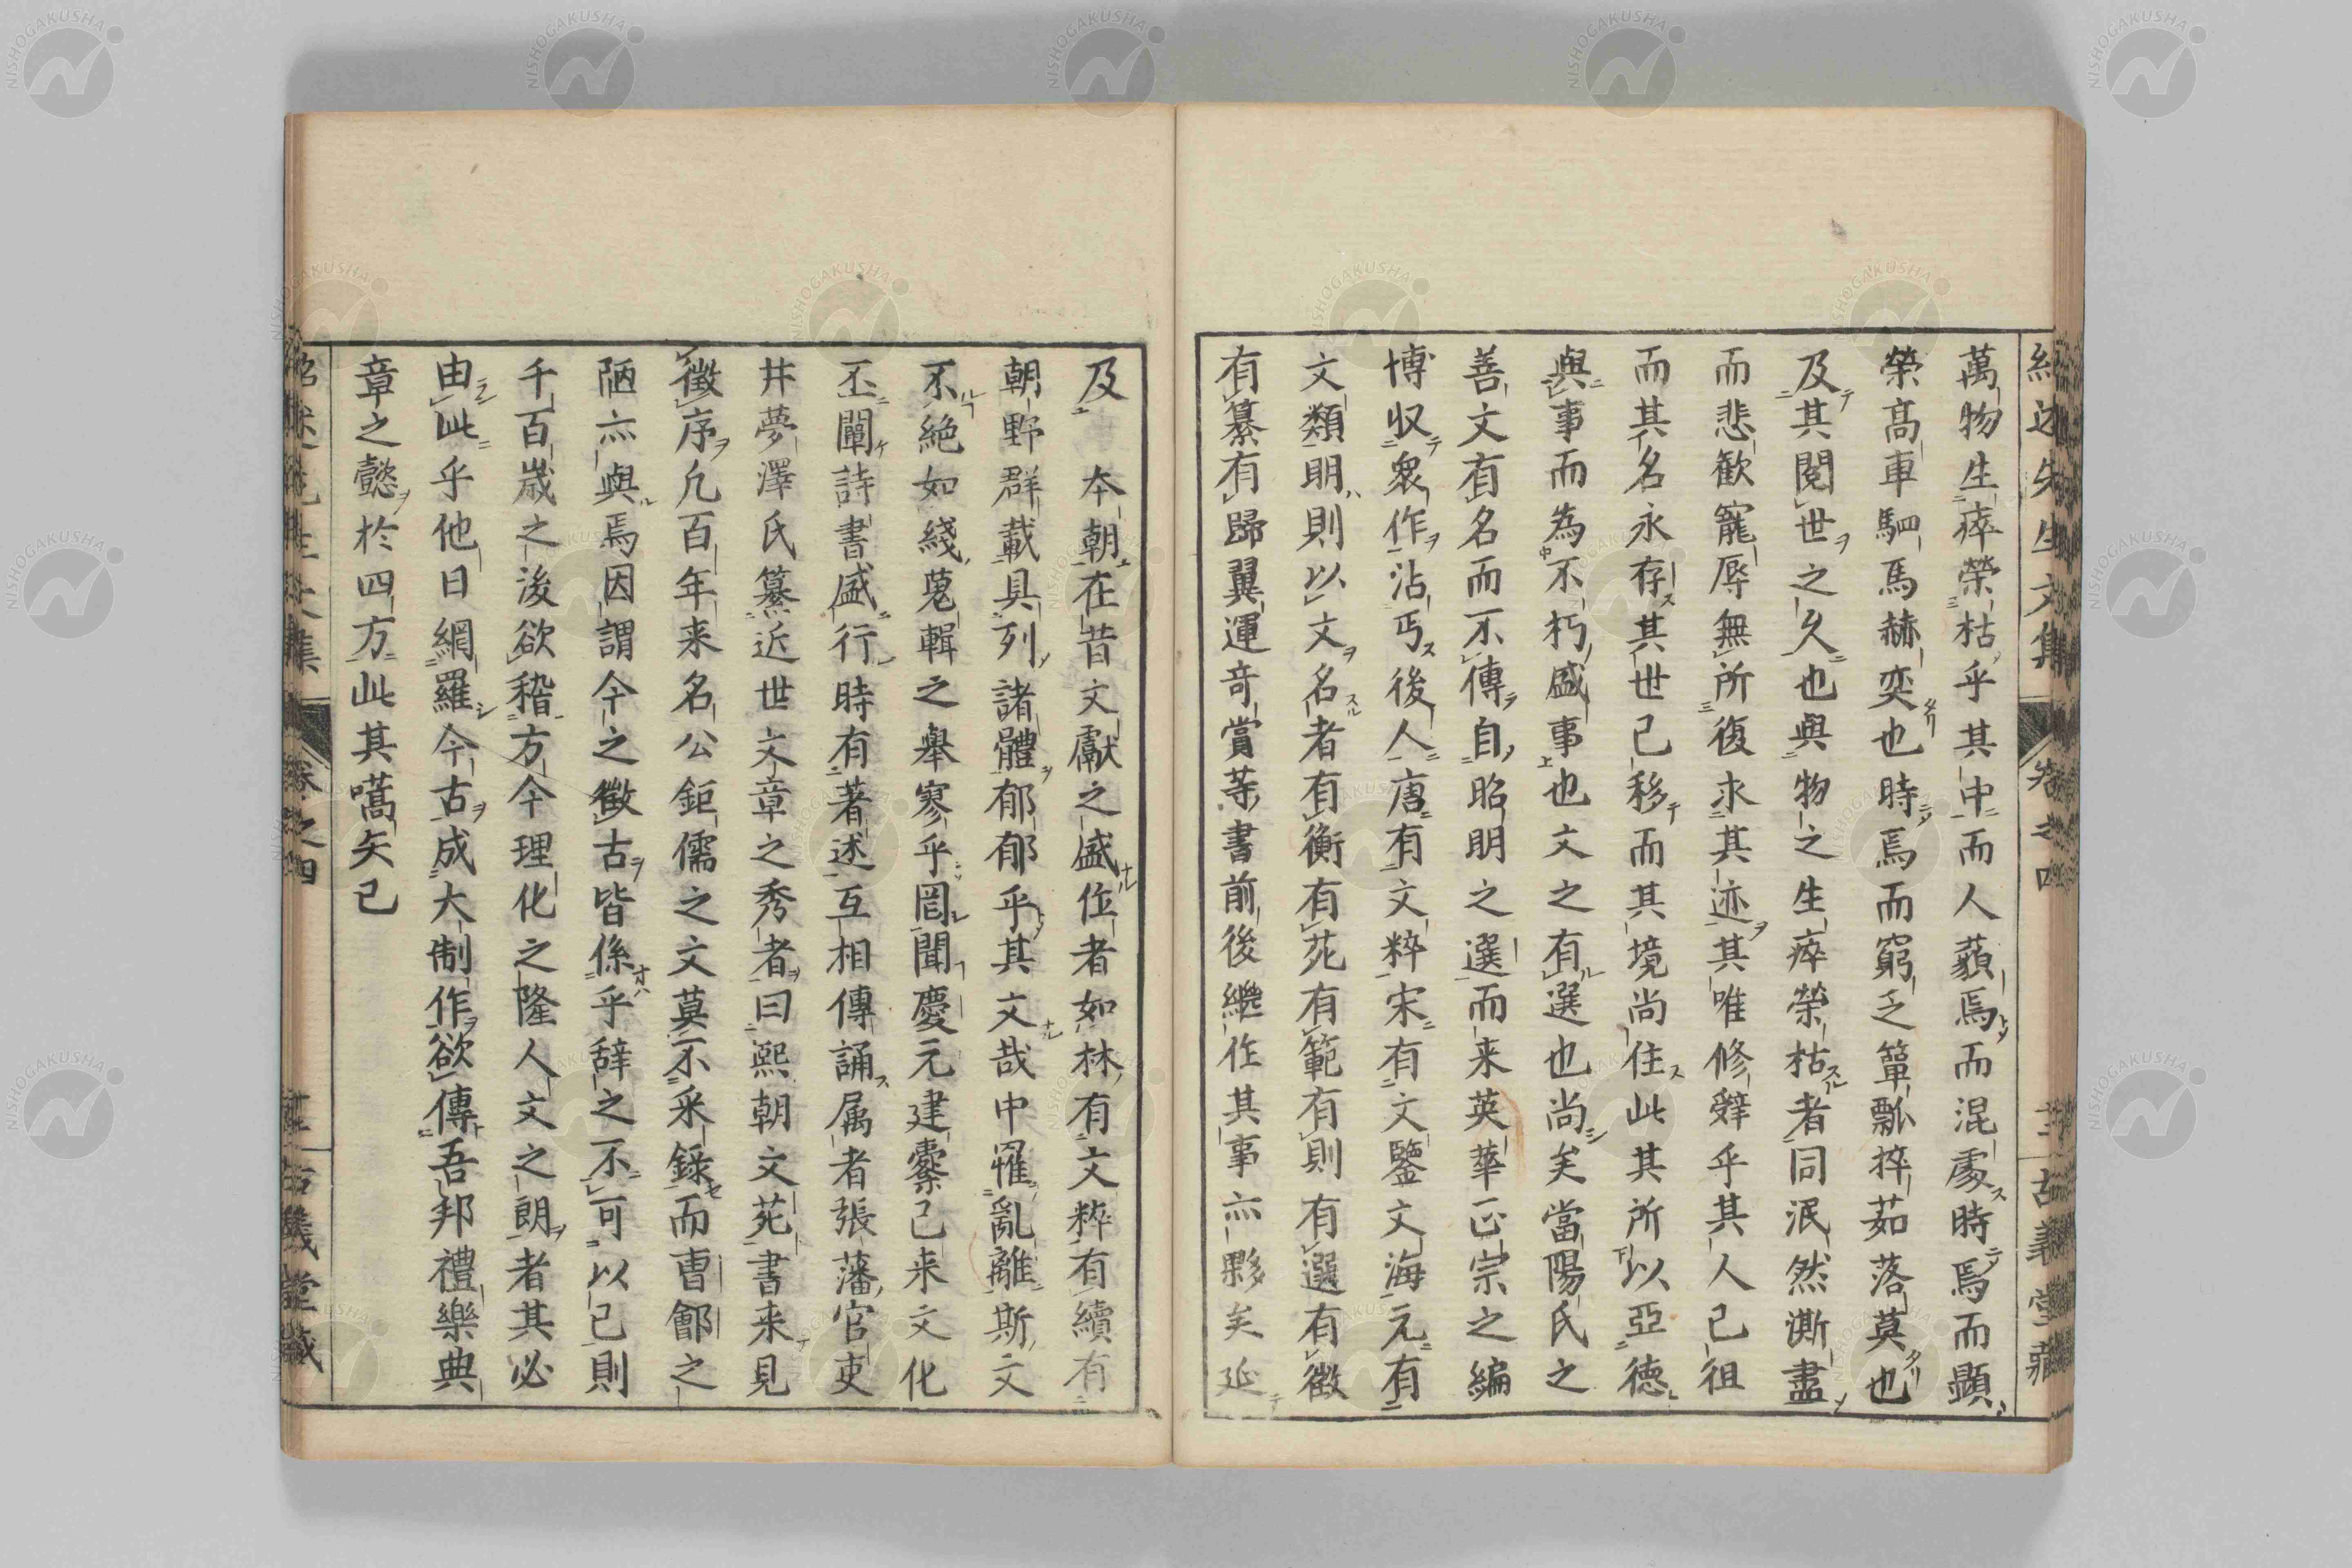 萬物生瘁榮枯乎其中而人藐焉而混處時焉而顯
榮高車駟馬赫奕也時焉而窮乏簞瓢捽茹落莫也
及其閱世之久也與物之生瘁榮枯者同泯然澌盡
而悲歡寵辱無所復求其迹其唯修辭乎其人已徂
而其名永存其世已移而其境尚住此其所以亞德
與事而為不朽盛事也文之有選也尚矣當陽氏之
善文有名而不傳自昭明之選而来英華正宗之編
博収衆作沾丐後人唐有文粹宋有文鑒文海元有
文類明則以文名者有衡有苑有範有則有選有徵
有纂有歸翼運奇賞等書前後繼作其事亦夥矣延
及 本朝在昔文獻之盛位者如林有文粹有續有
朝野群載具列諸體郁郁乎其文哉中罹亂離斯文
不絕如綫蒐輯之舉寥乎罔聞慶元建櫜已来文化
丕闡詩書盛行時有著述互相傳誦属者張藩官吏
井夢澤氏纂近世文章之秀者曰熙朝文苑書来見
徵序凡百年来名公鉅儒之文莫不采錄而曹鄶之
陋亦與焉因謂今之徵古皆係乎辭之不可以已則
千百歲之後欲稽方今理化之隆人文之朗者其必
由此乎他日網羅今古成大制作欲傳吾邦禮樂典
章之懿於四方此其嚆矢已